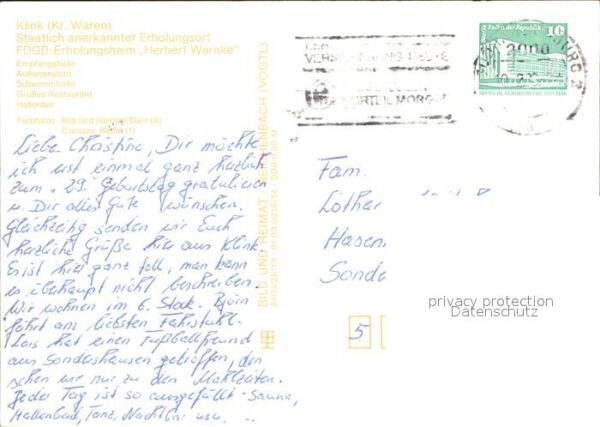 Klink (Kr. Waren)
Staatlich anerkannter Erholungsort
FDGB-Erholungsheim „Herbert Warnke"
Empfangshalle
Außenansicht
Schwimmhalle
Großes Restaurant
Hallenbar
Farbfotos: Bild und Heimat/Darr (4)
Corazza, Berlin (1)
Liebe Christine, Dir möchte
ich erst einmal ganz herzlich
zum 29. Geburtstag gratulieren
u. Dir alles Gute wünschen.
Gleichzeitig senden wir Euch
herzliche Grüße hier aus Klink.
Es ist hier ganz toll, man kann
es überhaupt nicht beschreiben.
Wir wohnen im 6. Stock. Björn
fährt am liebsten Fahrstuhl.
hat einen Fußballfreund
aus Sondershausen getroffen, den
sehen wir nur zu den Mahlzeiten.
Jeder Tag ist so ausgefüllt - Sauna,
Hallenbad, Tanz, Nachtbar usw.
BILD UND HEIMAT REICHENBACH (VOGTL)
Palast der Republik
10
2000
VORTEIL MORGEN
Fam.
Lothar
Hasen
Sonde
5
privacy protection
Datenschutz